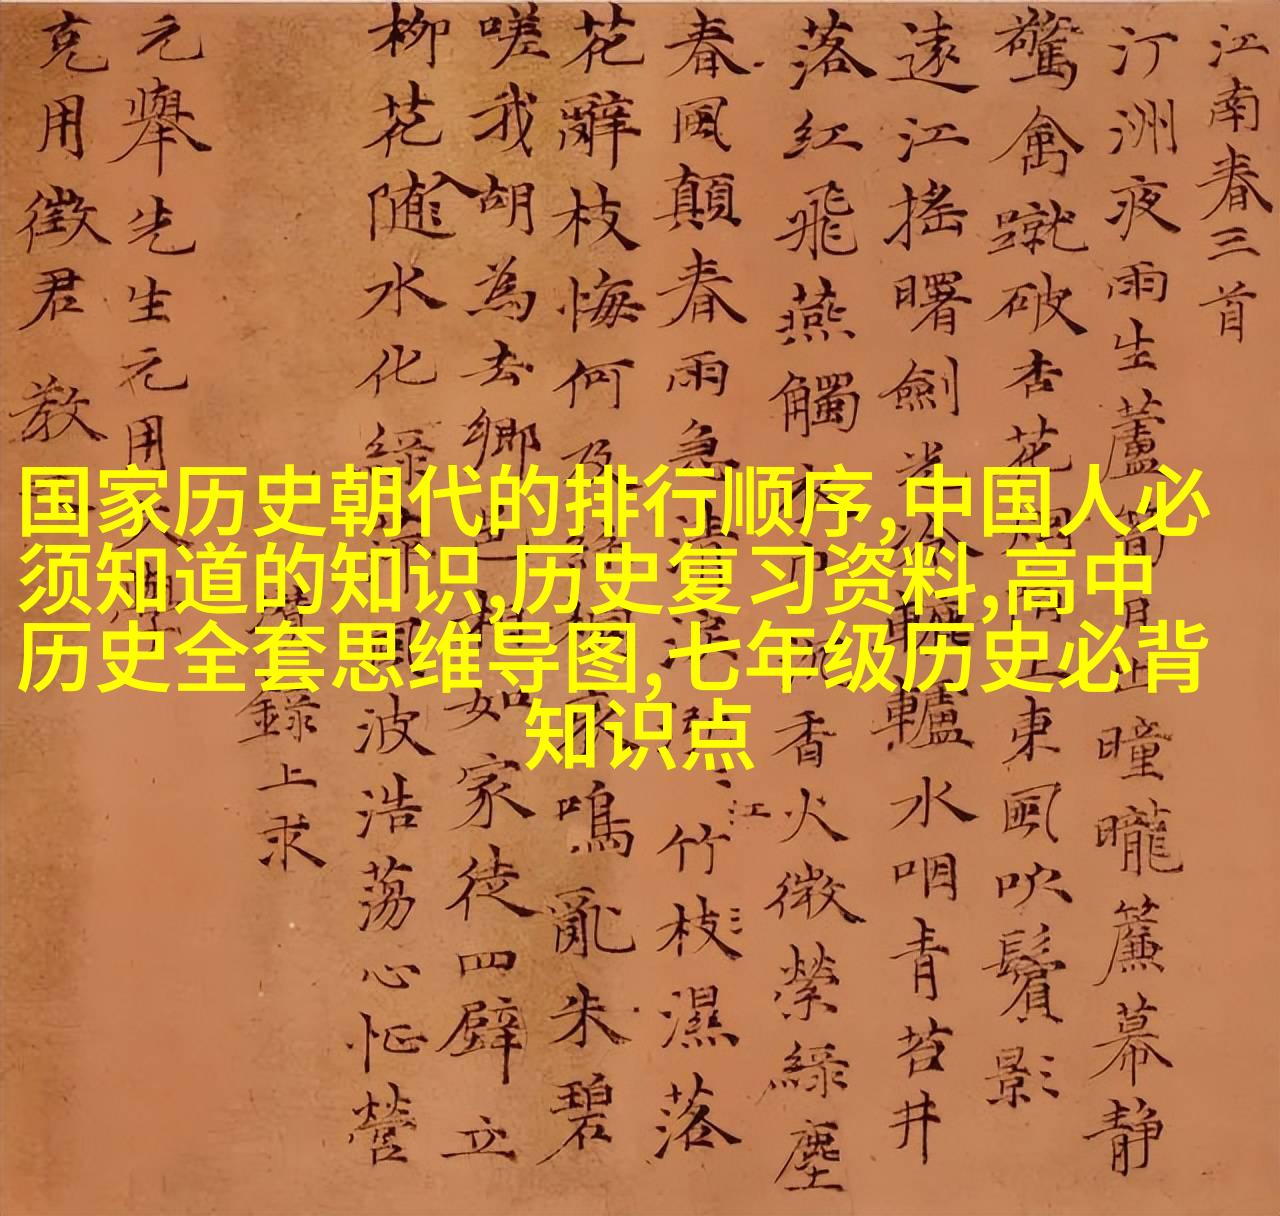 国家历史朝代的排行顺序,中国人必
须知道的知识,历史复习资料,高中
历史全套思维导图,七年级历史必背
知识点
江南春三首
汀洲夜雨生蘆筍日出曈曨簾幕静
驚禽蹴破杏花烟陌上東風吹鬢影
遠江搖曙劍光冷轆轤水咽青苔井
落紅飛燕觸衣巾沉香火微縈綠塵
春風顛春雨急清淚泓泓江竹枝濕落
花辭枝悔何及絲桐哀鳴亂朱碧
嗟我胡為去鄉邑相如家徒四壁立
柳花随入水化綠萍風波浩蕩心怔營
錄上求
元舉先生元用文學
克用徵君 教